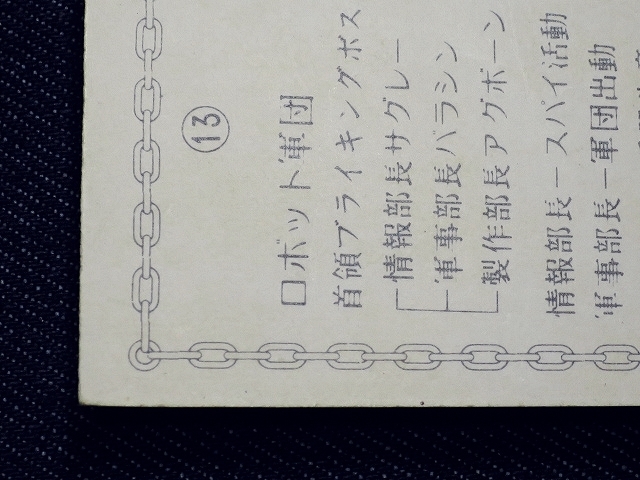 ⑬
ロボット軍団
首領ブライキングボス
情報部長サグレー
軍事部長バラシン
製作部長アグボーン
情報部長ースパイ活動
軍事部長ー軍団出動